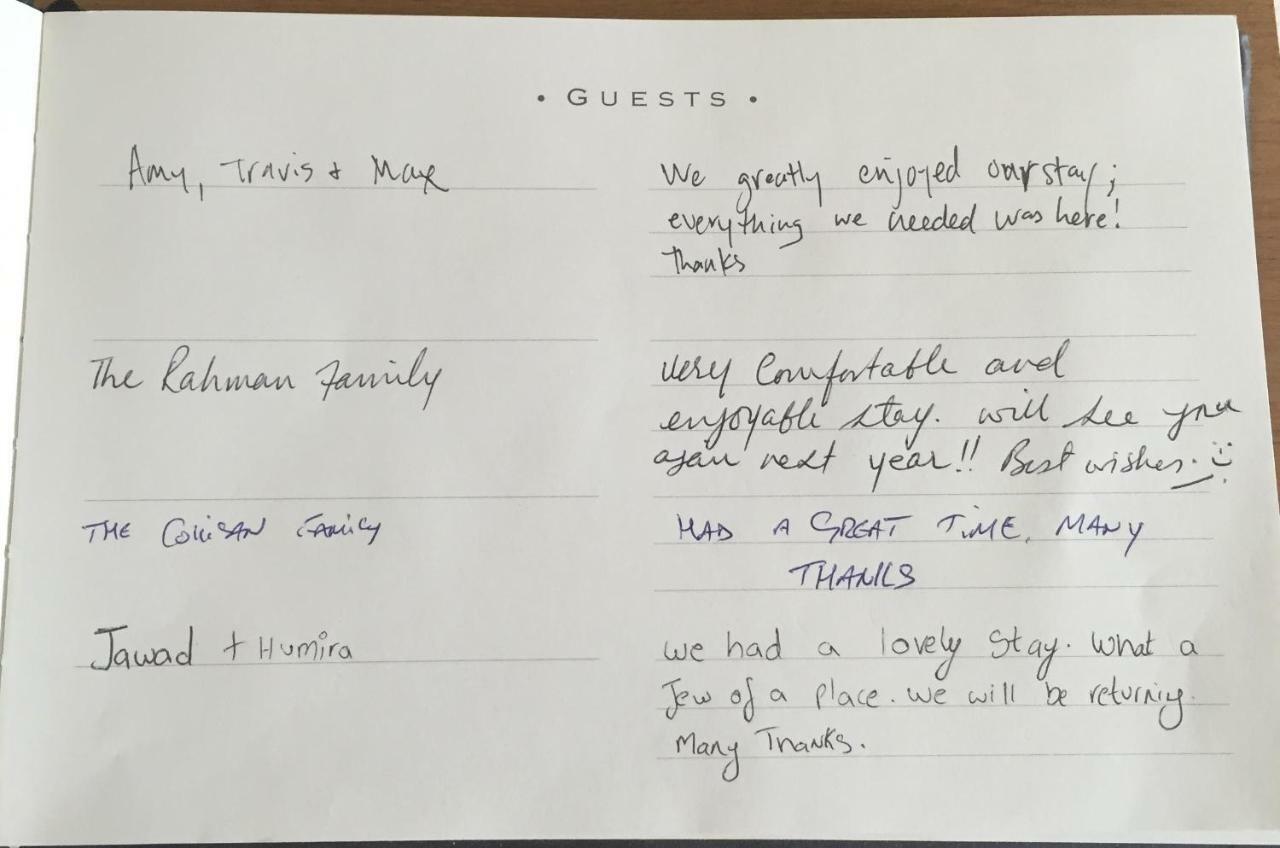 • GUESTS •
Amy, Travis + Max
We greatly enjoyed our stay;
everything we needed was here!
Thanks
The Rahman Family
very Comfortable and
enjoyable stay. will see you
again next year!! Best wishes.
THE FAMILY
HAD A GREAT TIME, MANY
THANKS
Jawad + Humira
we had a lovely stay. What a
Jew of a place. we will be returning.
Many Thanks.